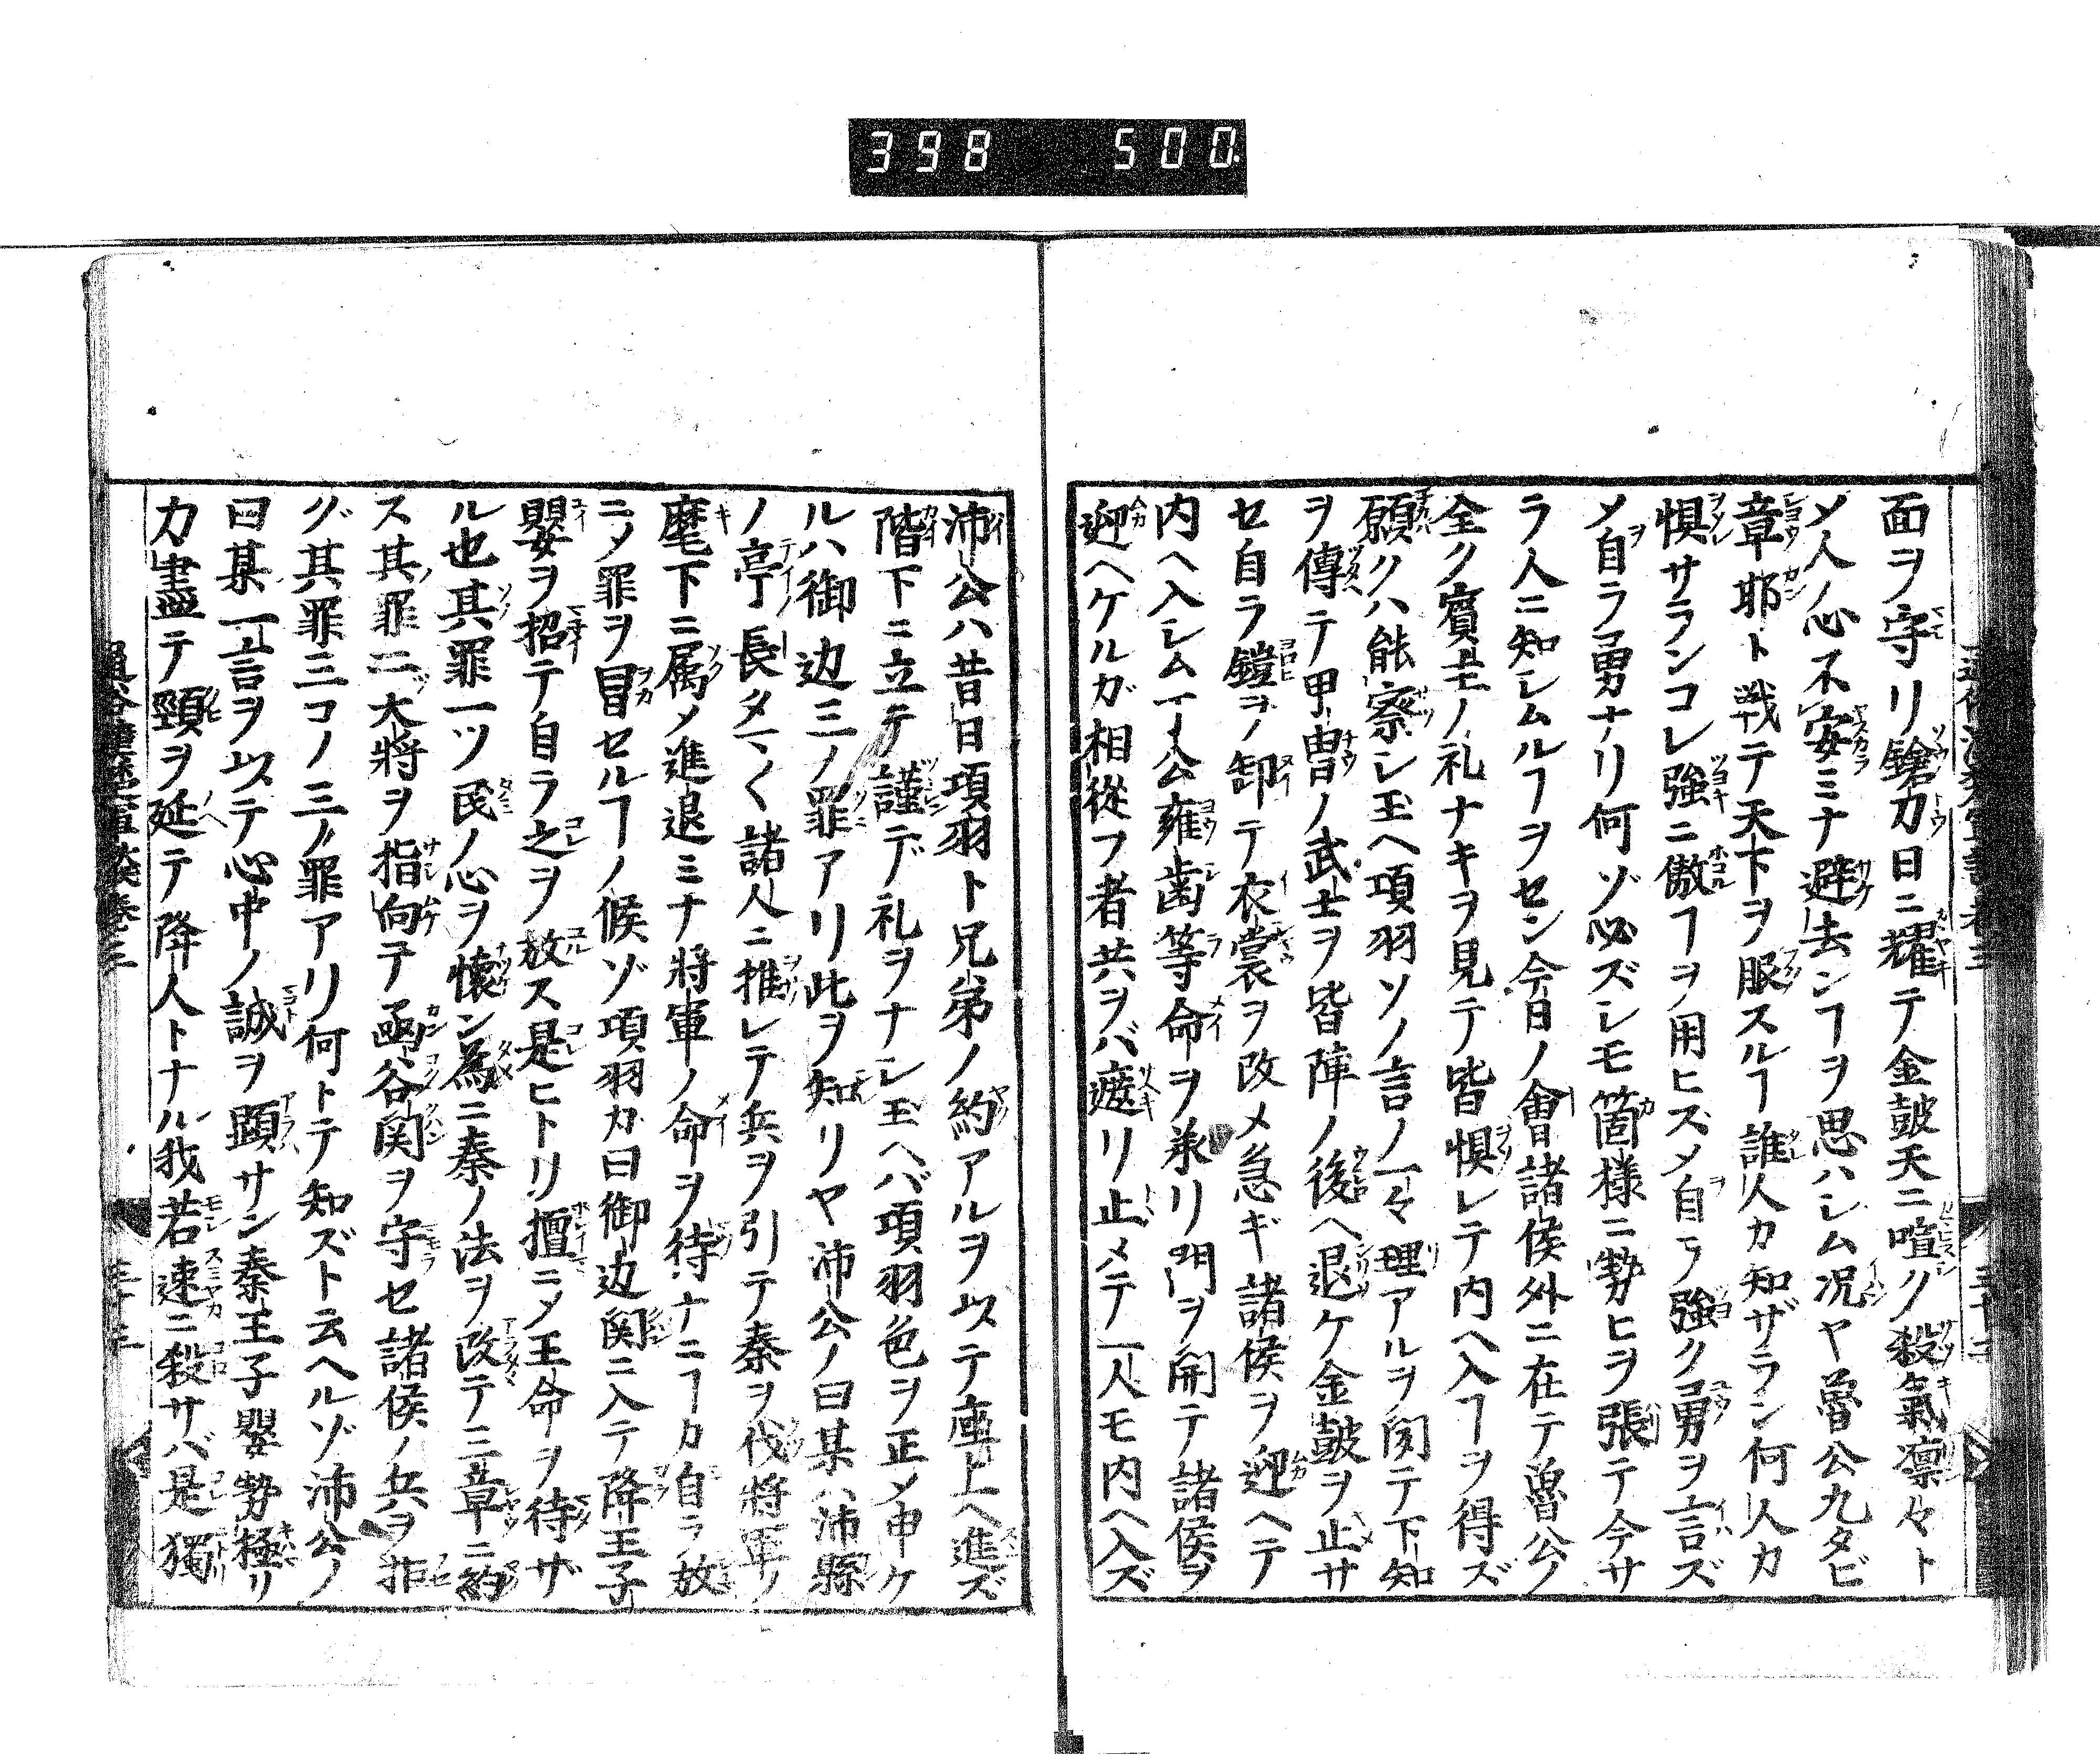 398 500
面ヲ守リ鎗刀日ニ耀テ金鼓天ニ喧ク殺氣凛々ト
〆人ノ心不安ミナ避去ンヿヲ思ハレム况ヤ魯公九タビ
章邯ト戦テ天下ヲ服スルヿ誰人カ知ザラン何人カ
惧サランコレ強ニ傲ヿヲ用ヒズ〆自ラ強ク勇ヲ言ズ
〆自ラ勇ナリ何ゾ必ズレモ箇様ニ勢ヒヲ張テ今サ
ラ人ニ知レムルヿヲセン今日ノ會諸侯外ニ在テ魯公ノ
全ク賓主ノ礼ナキヲ見テ皆惧レテ内ヘ入ヿヲ得ズ
願クハ能察レ玉ヘ項羽ソノ言ノ一々理アルヲ関テ下知
ヲ傳テ甲冑ノ武士ヲ皆陣ノ後ヘ退ケ金鼓ヲ止サ
セ自ラ鎧ヲ卸テ衣裳ヲ改メ急ギ諸侯ヲ迎ヘテ
内ヘ入レム丁公雍歯等命ヲ承リ門ヲ開テ諸侯ヲ
迎ヘケルガ相從フ者共ヲバ遮リ止メテ一人モ内ヘ入ズ
沛公ハ昔日項羽ト兄弟ノ約アルヲ以テ座上ヘ進ズ
階下ニ立テ謹デ礼ヲナレ玉ヘバ項羽色ヲ正〆申ケ
ルハ御边三ノ罪アリ此ヲ知リヤ沛公ノ曰某ハ沛縣
ノ亭長タヾく諸人ニ推レテ兵ヲ引テ秦ヲ伐將軍ノ
麾下ニ属〆進退ミナ將軍ノ命ヲ待ナニヿカ自ラ放
ニ〆罪ヲ冒セルヿノ候ゾ項羽カ曰御边関ニ入テ降王子
嬰ヲ招テ自ラ之ヲ放ス是ヒトリ擅ニ〆王命ヲ待ザ
ル也其罪一ツ民ノ心ヲ懐ン為ニ秦ノ法ヲ改テ三章ニ約
ス其罪二大將ヲ指向テ函谷関ヲ守セ諸侯ノ兵ヲ拒
グ其罪三コノ三ノ罪アリ何トテ知ズト云ヘルゾ沛公ノ
曰某一言ヲ以テ心中ノ誠ヲ顕サン秦王子嬰勢極リ
力盡テ頸ヲ延テ降人トナル我若速ニ殺サバ是獨